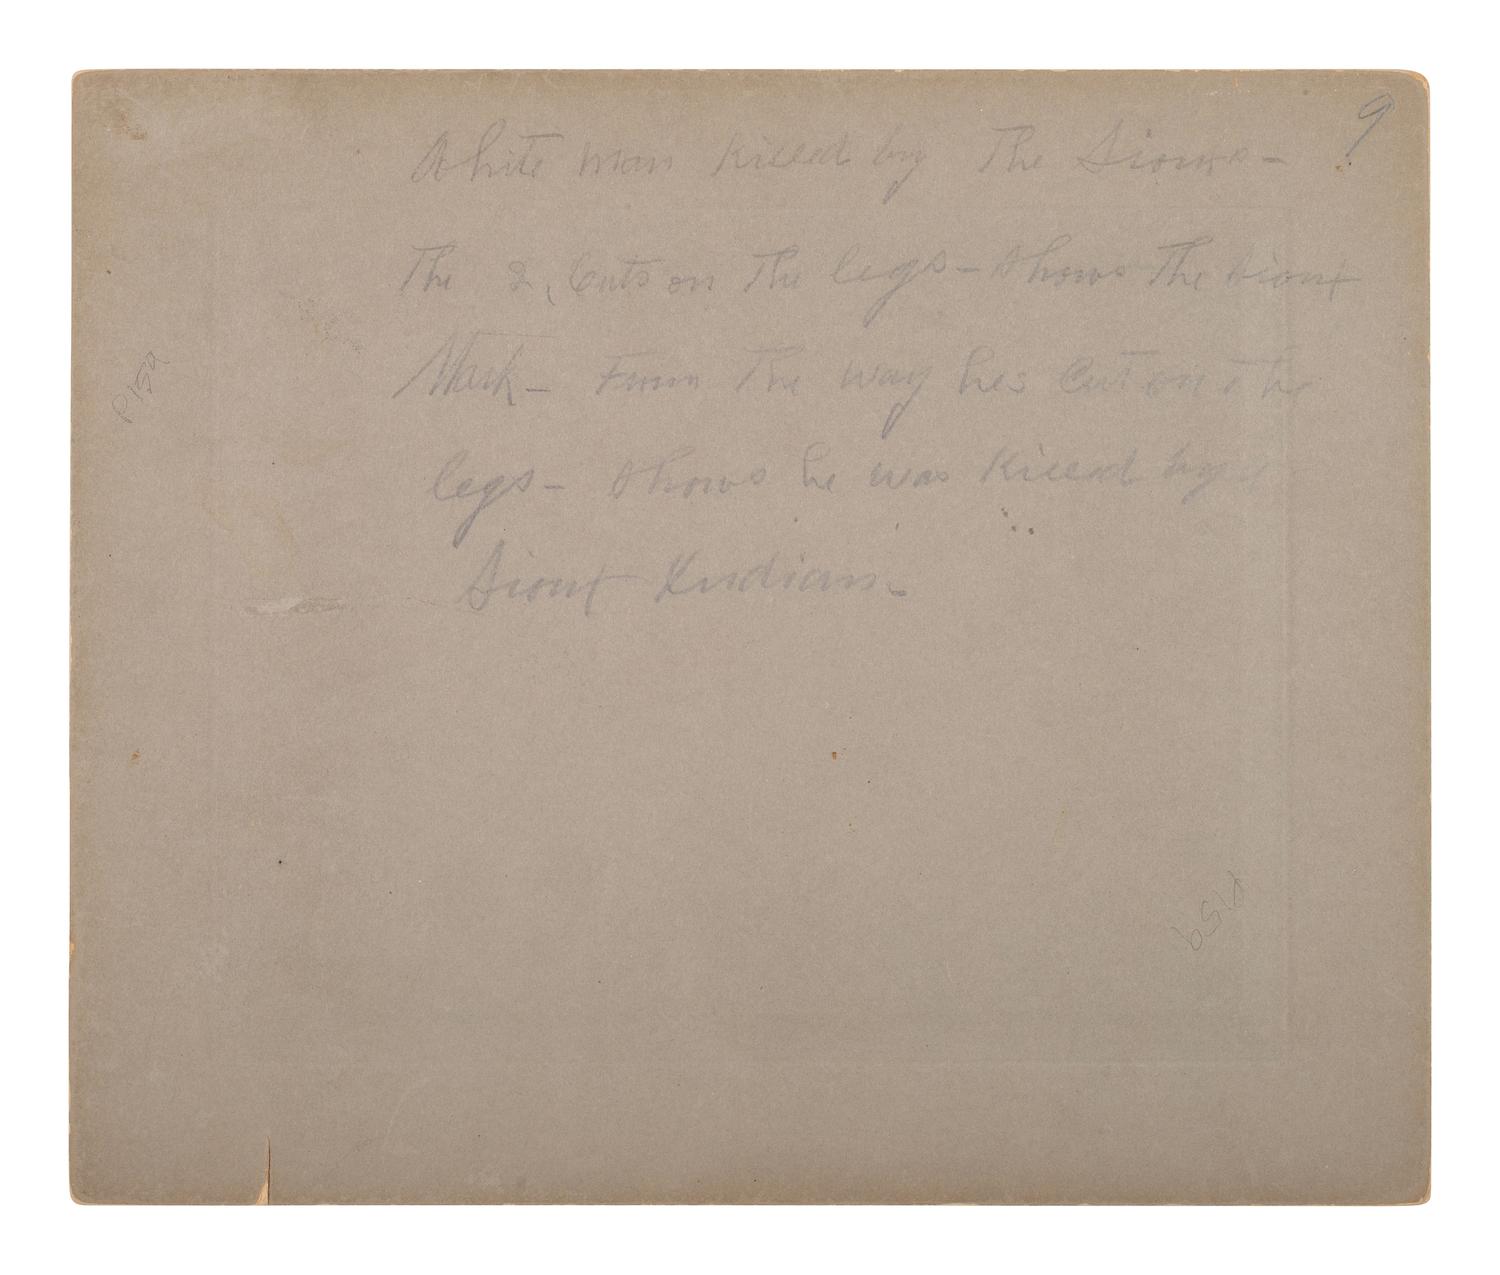 9
White man Killed by The Sioux -
The 2, Cuts on The legs - Shows The Sioux
Mark - From The way hes Cut on the
legs - Shows he was Killed by
Sioux Indians -
P159
P159